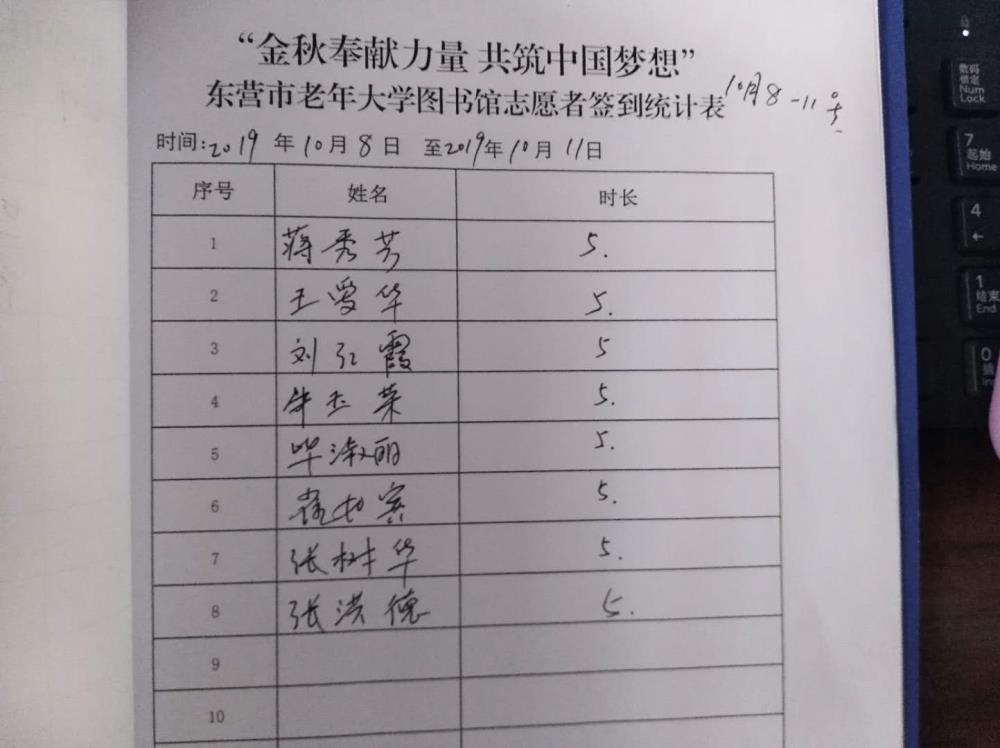 “金秋奉献力量 共筑中国梦想”
东营市老年大学图书馆志愿者签到统计表 10月8-11号
时间:2019年10月8日 至2019年10月11日
序号 姓名 时长
1 蒋秀芳 5.
2 王爱华 5.
3 刘红霞 5
4 5.
5 毕淑丽 5.
6 5.
7 张树华 5.
8 张洪德 5.
9
10
数码
锁定
Num
Lock
7
起始
Home
4
←
1
结束
End
0